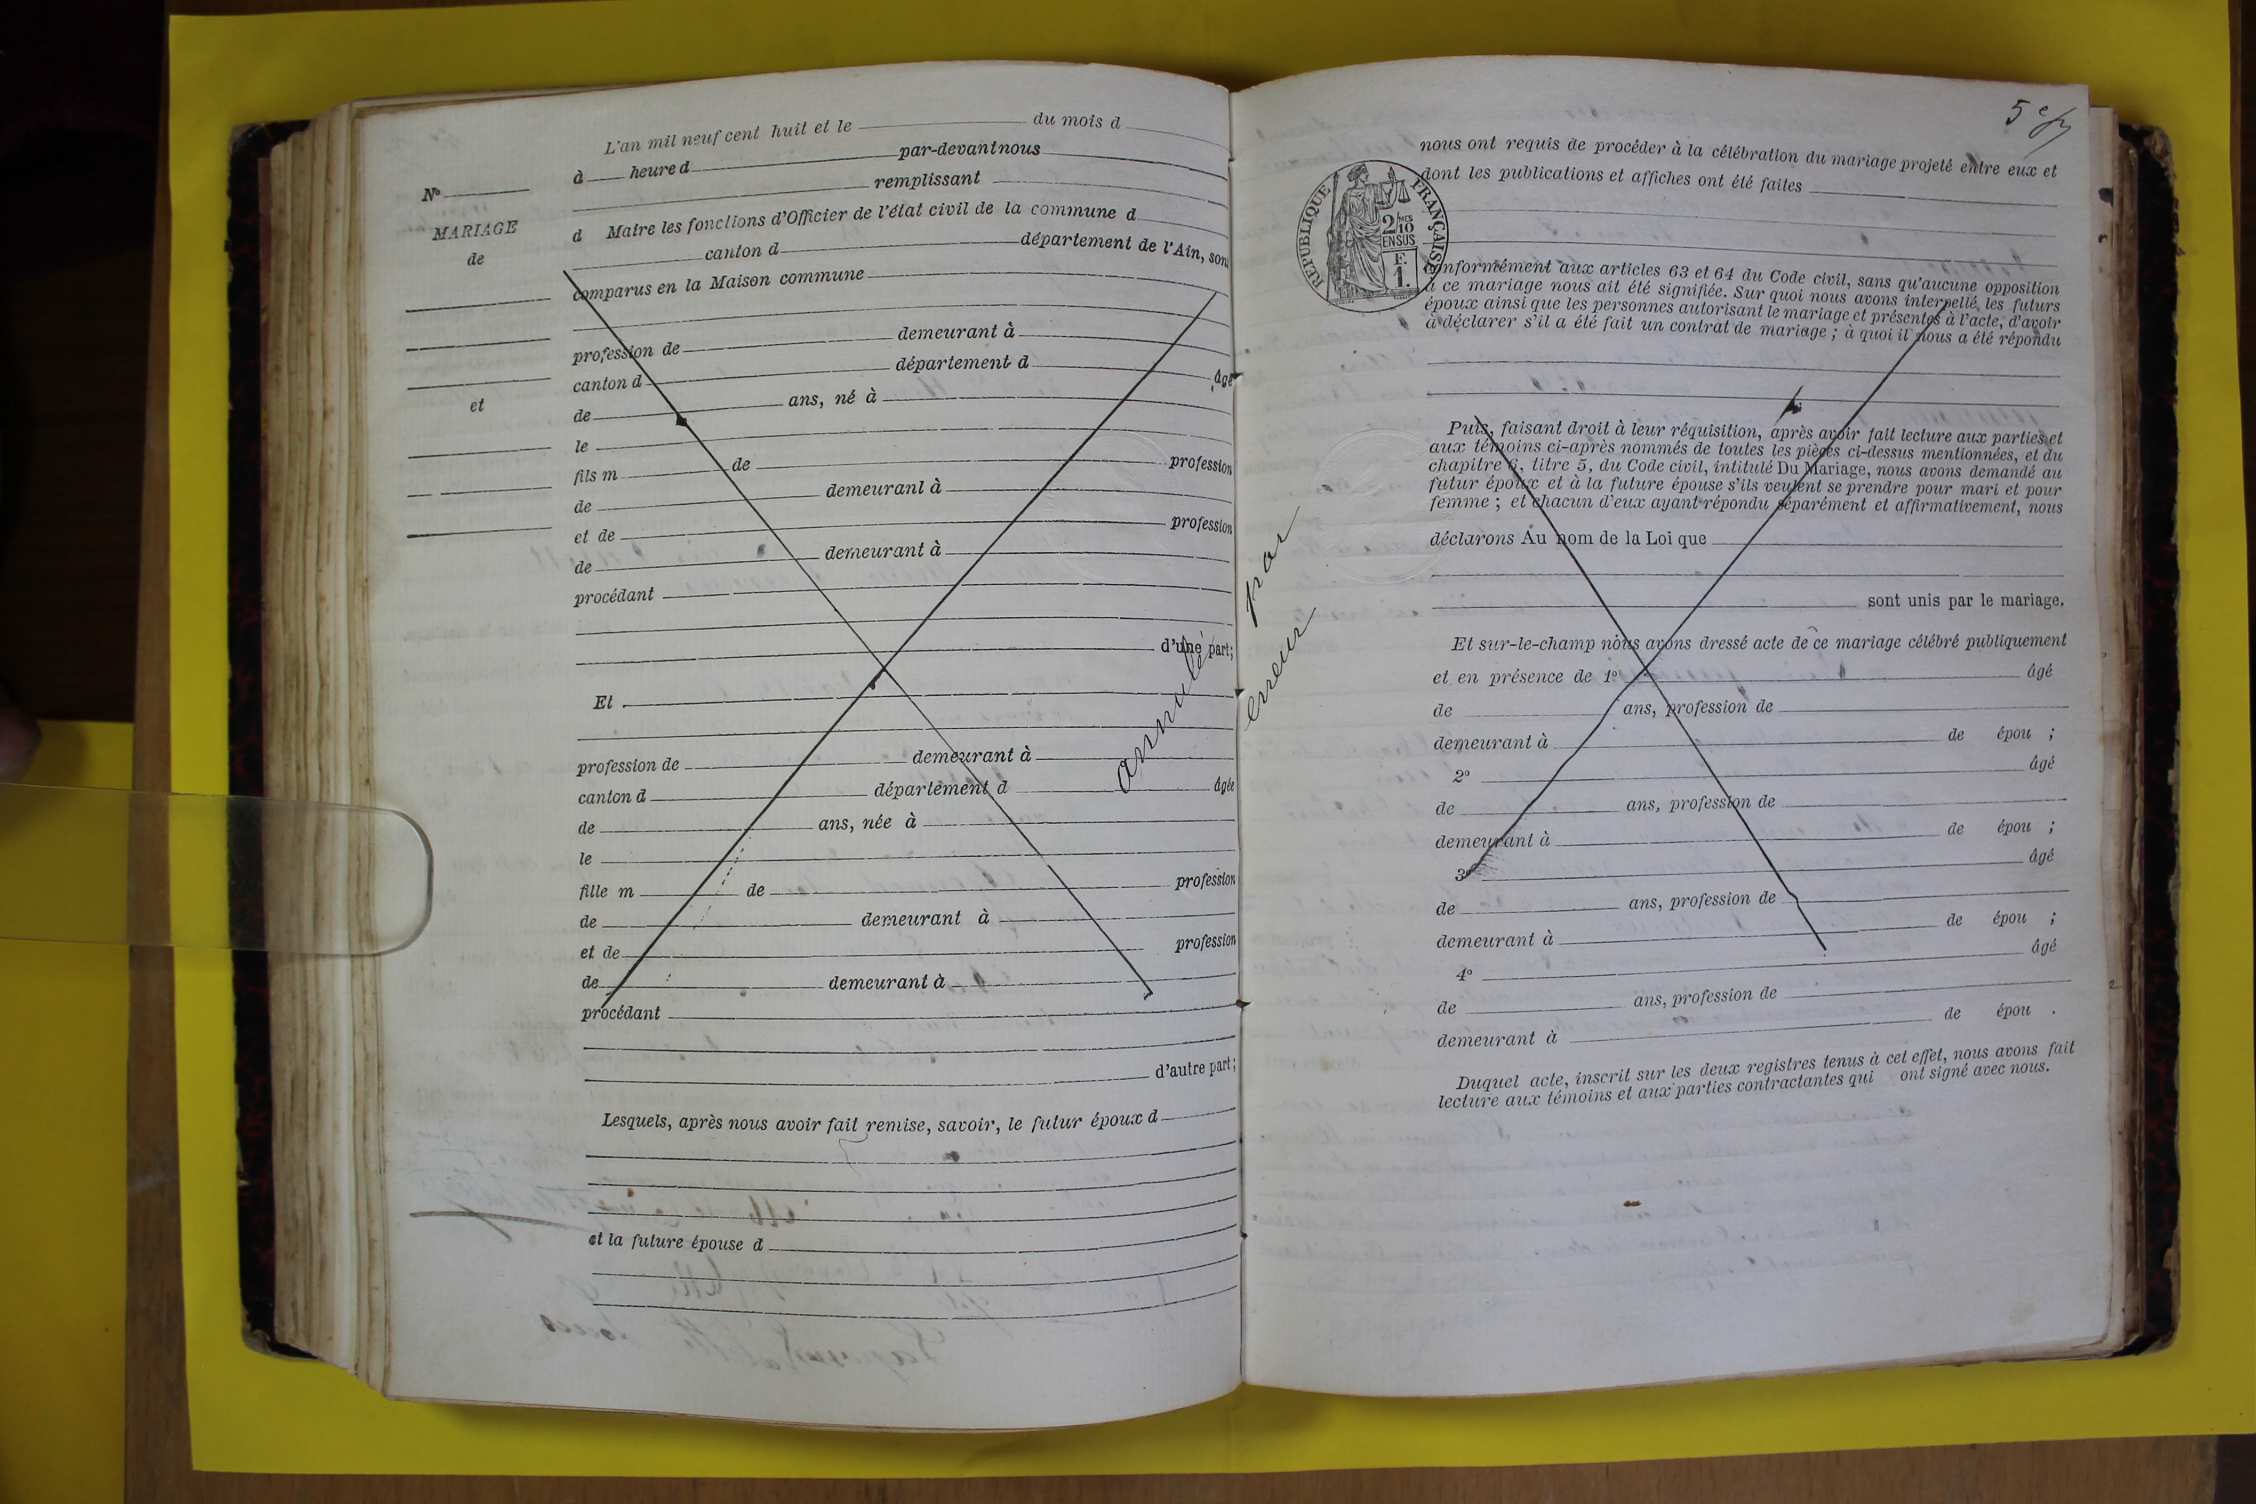 L'an mil neuf cent huit et le du mois d
à heure d par-devant nous
remplissant
d Maire les fonctions d'Officier de l'état civil de la commune d
canton d département de l'Ain, son
comparus en la Maison commune
profession de demeurant à
canton d département d âgé
de ans, né à
le
fils m de profession
de demeurant à
et de profession
de demeurant à
procédant
d'une part;
Et
profession de demeurant à
canton d département d âgée
de ans, née à
le
fille m de profession
de demeurant à
et de profession
de demeurant à
procédant
d'autre part;
Lesquels, après nous avoir fait remise, savoir, le futur époux d
et la future épouse d
N°
MARIAGE
de
et
annulé par
erreur
5e
nous ont requis de procéder à la célébration du mariage projeté entre eux et
dont les publications et affiches ont été faites
RÉPUBLIQUE FRANÇAISE
2/10 MES
EN SUS
F.
1.
conformément aux articles 63 et 64 du Code civil, sans qu'aucune opposition
à ce mariage nous ait été signifiée. Sur quoi nous avons interpellé les futurs
époux ainsi que les personnes autorisant le mariage et présentes à l'acte, d'avoir
à déclarer s'il a été fait un contrat de mariage ; à quoi il nous a été répondu
Puis, faisant droit à leur réquisition, après avoir fait lecture aux parties et
aux témoins ci-après nommés de toutes les pièces ci-dessus mentionnées, et du
chapitre 6, titre 5, du Code civil, intitulé Du Mariage, nous avons demandé au
futur époux et à la future épouse s'ils veulent se prendre pour mari et pour
femme ; et chacun d'eux ayant répondu séparément et affirmativement, nous
déclarons Au nom de la Loi que
sont unis par le mariage.
Et sur-le-champ nous avons dressé acte de ce mariage célébré publiquement
et en présence de 1° âgé
de ans, profession de
demeurant à de épou ;
2° âgé
de ans, profession de
demeurant à de épou ;
3° âgé
de ans, profession de
demeurant à de épou ;
4° âgé
de ans, profession de
demeurant à de épou .
Duquel acte, inscrit sur les deux registres tenus à cet effet, nous avons fait
lecture aux témoins et aux parties contractantes qui ont signé avec nous.